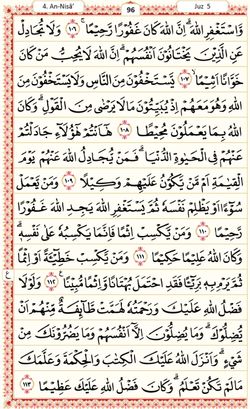 4. An-Nisā'
96
Juz 5
وَّاسْتَغْفِرِ اللّٰهَ ۗاِنَّ اللّٰهَ كَانَ غَفُوْرًا رَّحِيْمًاۚ ١٠٦ وَلَا تُجَادِلْ
عَنِ الَّذِيْنَ يَخْتَانُوْنَ اَنْفُسَهُمْ ۗاِنَّ اللّٰهَ لَا يُحِبُّ مَنْ كَانَ
خَوَّانًا اَثِيْمًاۙ ١٠٧ يَّسْتَخْفُوْنَ مِنَ النَّاسِ وَلَا يَسْتَخْفُوْنَ مِنَ
اللّٰهِ وَهُوَ مَعَهُمْ اِذْ يُبَيِّتُوْنَ مَا لَا يَرْضٰى مِنَ الْقَوْلِ ۗ وَكَانَ
اللّٰهُ بِمَا يَعْمَلُوْنَ مُحِيْطًا ١٠٨ هٰٓاَنْتُمْ هٰٓؤُلَاۤءِ جَادَلْتُمْ
عَنْهُمْ فِى الْحَيٰوةِ الدُّنْيَاۗ فَمَنْ يُّجَادِلُ اللّٰهَ عَنْهُمْ يَوْمَ
الْقِيٰمَةِ اَمْ مَّنْ يَّكُوْنُ عَلَيْهِمْ وَكِيْلًا ١٠٩ وَمَنْ يَّعْمَلْ
سُوْۤءًا اَوْ يَظْلِمْ نَفْسَهٗ ثُمَّ يَسْتَغْفِرِ اللّٰهَ يَجِدِ اللّٰهَ غَفُوْرًا
رَّحِيْمًا ١١٠ وَمَنْ يَّكْسِبْ اِثْمًا فَاِنَّمَا يَكْسِبُهٗ عَلٰى نَفْسِهٖ ۗ
وَكَانَ اللّٰهُ عَلِيْمًا حَكِيْمًا ١١١ وَمَنْ يَّكْسِبْ خَطِيْۤـَٔةً اَوْ اِثْمًا
ثُمَّ يَرْمِ بِهٖ بَرِيْۤـًٔا فَقَدِ احْتَمَلَ بُهْتَانًا وَّاِثْمًا مُّبِيْنًا ١١٢ وَلَوْلَا
ع
فَضْلُ اللّٰهِ عَلَيْكَ وَرَحْمَتُهٗ لَهَمَّتْ طَّاۤىِٕفَةٌ مِّنْهُمْ اَنْ
يُّضِلُّوْكَۗ وَمَا يُضِلُّوْنَ اِلَّآ اَنْفُسَهُمْ وَمَا يَضُرُّوْنَكَ مِنْ
شَيْءٍ ۗ وَاَنْزَلَ اللّٰهُ عَلَيْكَ الْكِتٰبَ وَالْحِكْمَةَ وَعَلَّمَكَ
مَا لَمْ تَكُنْ تَعْلَمُۗ وَكَانَ فَضْلُ اللّٰهِ عَلَيْكَ عَظِيْمًا ١١٣